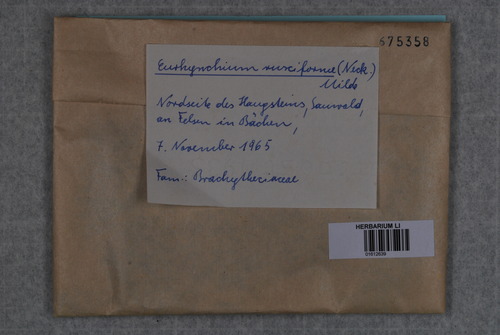 675358
Eurhynchium rusciforme (Neck.)
Milde
Nordseite des Haugsteins, Sauwald,
an Felsen in Bächen,
7. November 1965
Fam.: Brachytheciaceae
HERBARIUM LI
01012639